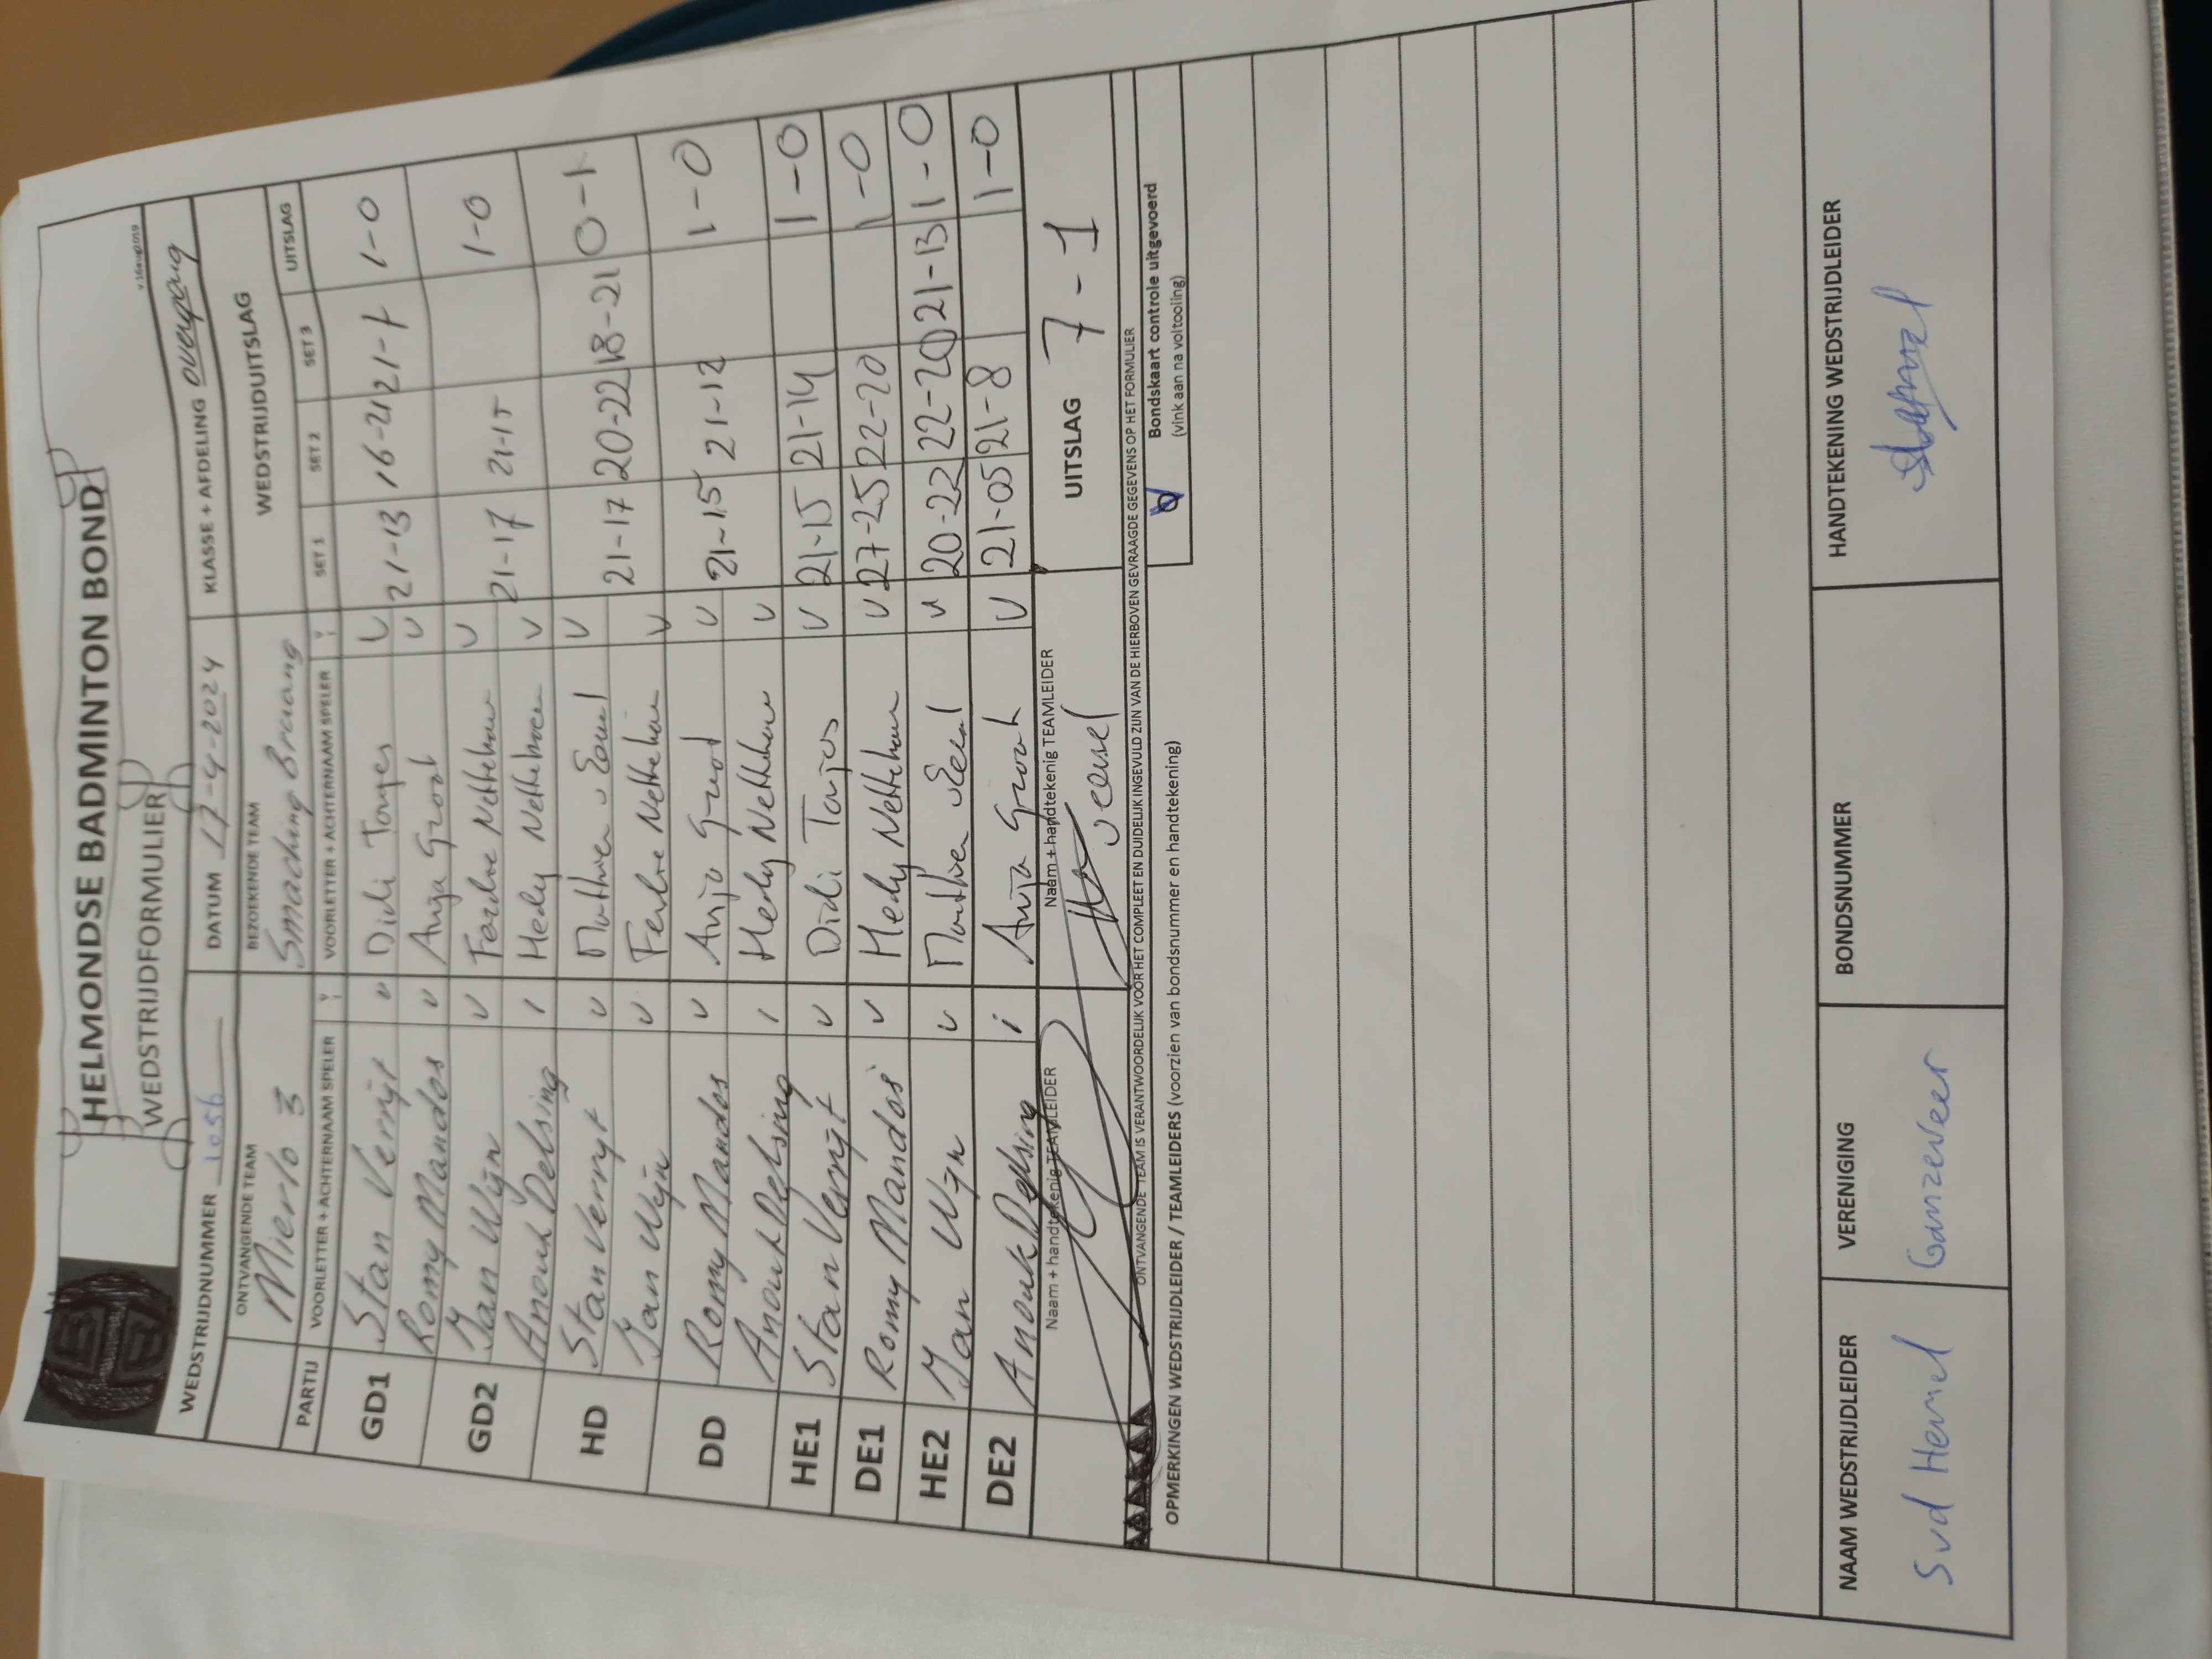 HELMONDSE BADMINTON BOND
WEDSTRIJDFORMULIER
v.16aug2019
WEDSTRIJDNUMMER 1056 DATUM 17-4-2024 KLASSE + AFDELING overgang
ONTVANGENDE TEAM BEZOEKENDE TEAM WEDSTRIJDUITSLAG
Mierlo 3 Smaching Breiang
PARTIJ VOORLETTER + ACHTERNAAM SPELER V/I VOORLETTER + ACHTERNAAM SPELER V/I SET 1 SET 2 SET 3 UITSLAG
GD1 Stan Verrijt v Didi Tonjes v 21-13 16-21 21-7 1-0
Romy Mandos v Anja Groot v
GD2 Jan Wijn v Ferdie Nettehoven v 21-17 21-15 1-0
Anouk Delsing i Hedy Nettehoven v
HD Stan Verrijt v v 21-17 20-22 18-21 0-1
Jan Wijn v v
DD Romy Mandos v Anja Groot v 21-15 21-12 1-0
Anouk Delsing i Hedy Nettehoven v
HE1 Stan Verrijt v Didi v 21-15 21-14 1-0
DE1 Romy Mandos v Hedy Nettehoven v 27-25 22-20 1-0
HE2 Jan Wijn v v 20-22 22-20 21-13 1-0
DE2 Anouk Delsing i Anja Groot v 21-05 21-8 1-0
Naam + handtekenig TEAMLEIDER Naam + handtekenig TEAMLEIDER UITSLAG 7-1
ONTVANGENDE TEAM IS VERANTWOORDELIJK VOOR HET COMPLEET EN DUIDELIJK INGEVULD ZIJN VAN DE HIERBOVEN GEVRAAGDE GEGEVENS OP HET FORMULIER
OPMERKINGEN WEDSTRIJDLEIDER / TEAMLEIDERS (voorzien van bondsnummer en handtekening)
Bondskaart controle uitgevoerd
(vink aan na voltooiing)
NAAM WEDSTRIJDLEIDER VERENIGING BONDSNUMMER HANDTEKENING WEDSTRIJDLEIDER
S vd Hemel Ganzeveer